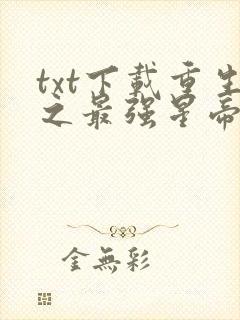 txt下载重生
之最强星帝
金無彩